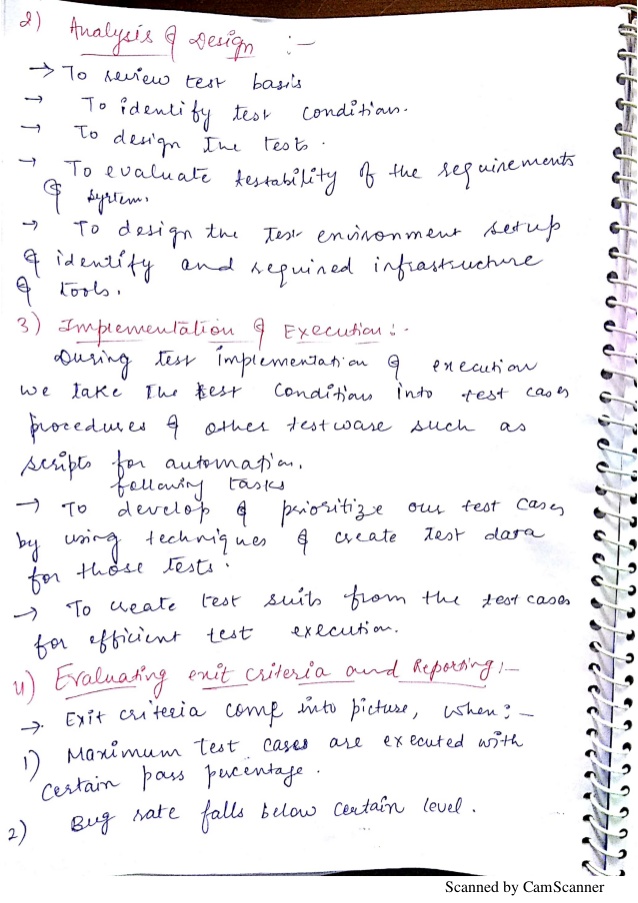 2) Analysis & Design :-
→ To review test basis
→ To identify test condition.
→ To design the tests.
→ To evaluate testability of the requirements
& system.
→ To design the test environment setup
& identify and required infrastructure
& tools.
3) Implementation & Execution:-
During test implementation & execution
we take the test conditions into test cases
procedures & other testware such as
scripts for automation.
following tasks
→ To develop & prioritize our test cases
by using techniques & create test data
for those tests.
→ To create test suits from the test cases
for efficient test execution.
4) Evaluating exit criteria and Reporting:-
→ Exit criteria come into picture, when:-
1) Maximum test cases are executed with
certain pass percentage.
2) Bug rate falls below certain level.
Scanned by CamScanner